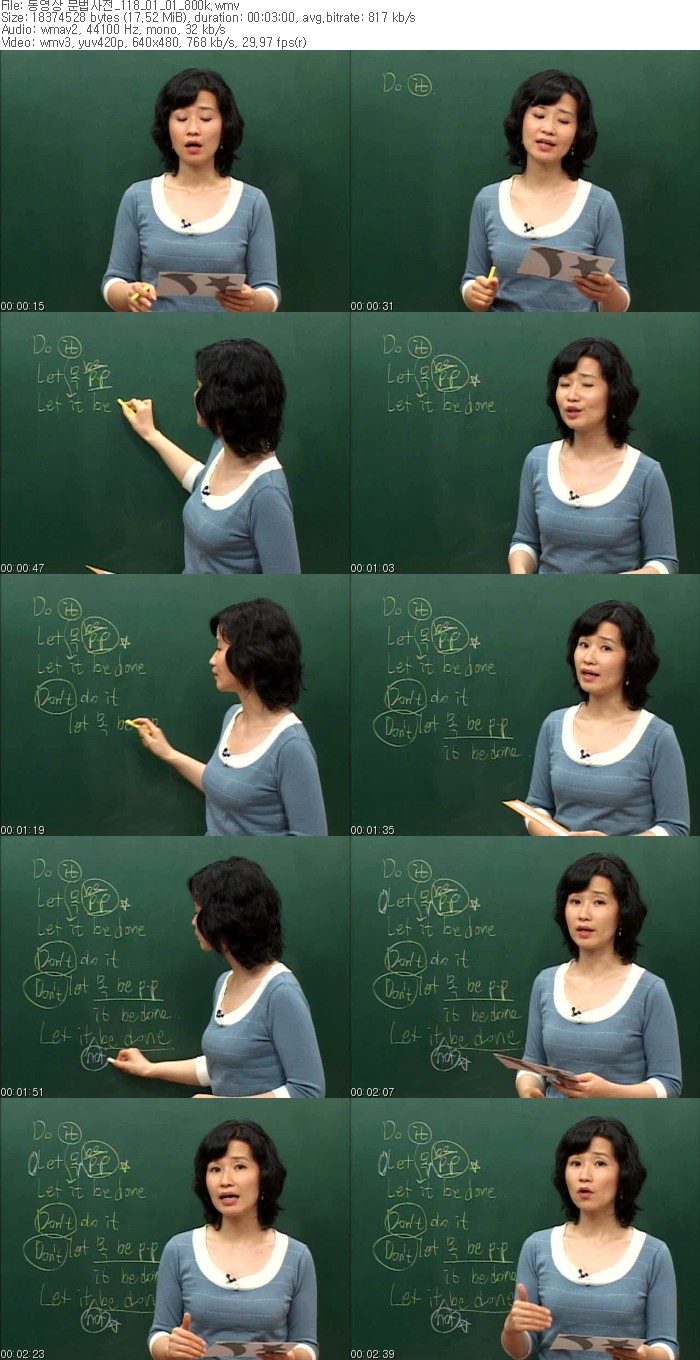 File: 동영상 문법사전_118_01_01_800k.wmv
Size: 18374528 bytes (17.52 MiB), duration: 00:03:00, avg.bitrate: 817 kb/s
Audio: wmav2, 44100 Hz, mono, 32 kb/s
Video: wmv3, yuv420p, 640x480, 768 kb/s, 29.97 fps(r)
00:00:15
Do it
00:00:31
Do it
Let 목 be pp
Let it be
00:00:47
Do it
Let 목 be pp
Let it be done
00:01:03
Do it
Let 목 be pp
Let it be done
Don't do it
let 목 be
00:01:19
Do it
Let 목 be pp
Let it be done
Don't do it
Don't let 목 be p.p
it be done
00:01:35
Do it
Let 목 be pp
Let it be done
Don't do it
Don't let 목 be p.p
it be done
Let it be done
not
00:01:51
Do it
Let 목 be pp
Let it be done
Don't do it
Don't let 목 be p.p
it be done
Let it be done
not
00:02:07
Do it
Let 목 be pp
Let it be done
Don't do it
Don't let 목 be p.p
it be done
Let it be don
not
00:02:23
Do it
Let 목 be pp
Let it be done
Don't do it
Don't let 목 be p.p
it be done
Let it be don
not
00:02:39